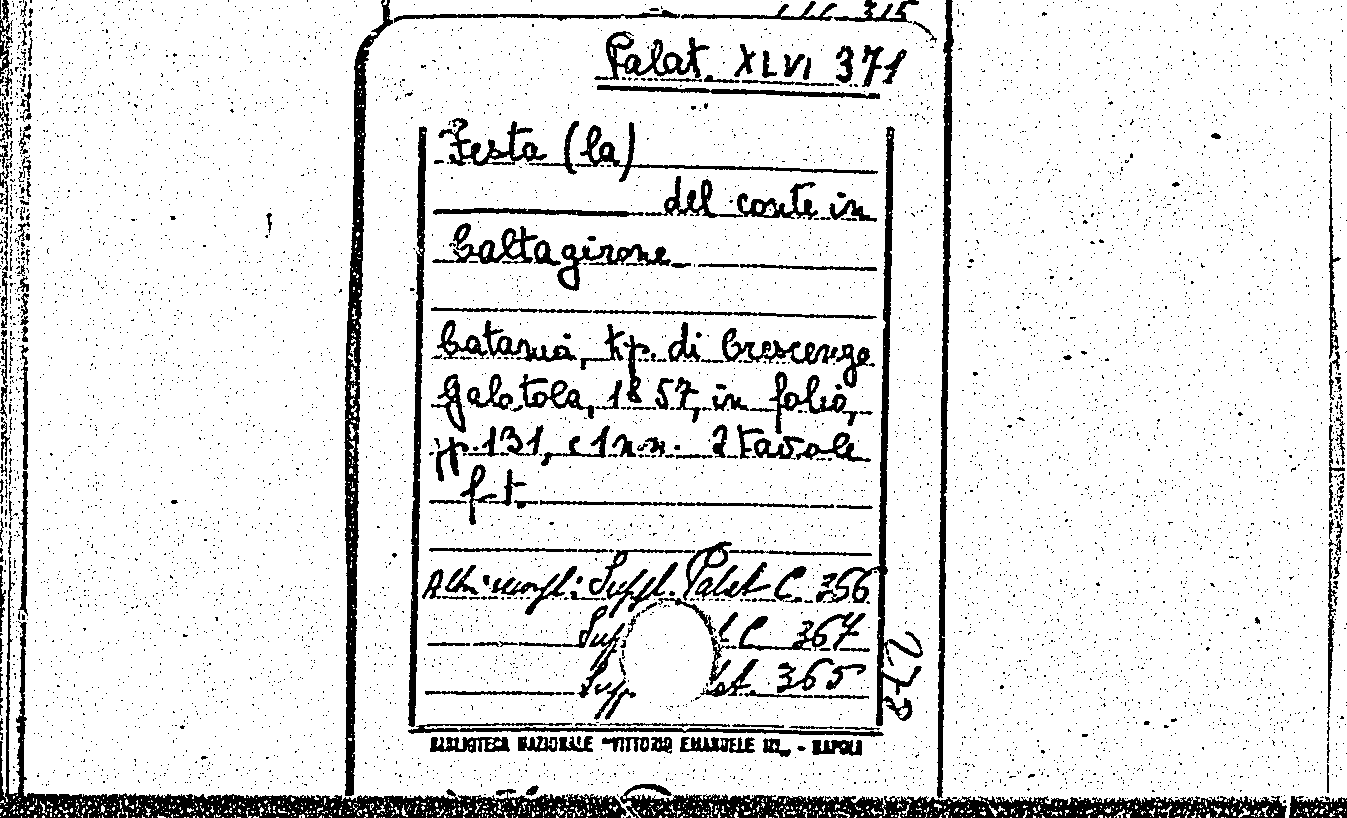 315
Palat. XLVI 371
Festa (la)
del conte in
Caltagirone
Catania, tip. di Crescenzo
Galatola, 1857, in folio,
pp. 131, e 1 n.n. 2 tavole
f.t.
Altri esempl: Suppl. Palat C. 356
Sup C. 367
Supp lat. 365
BIBLIOTECA NAZIONALE "VITTORIO EMANUELE III" - NAPOLI